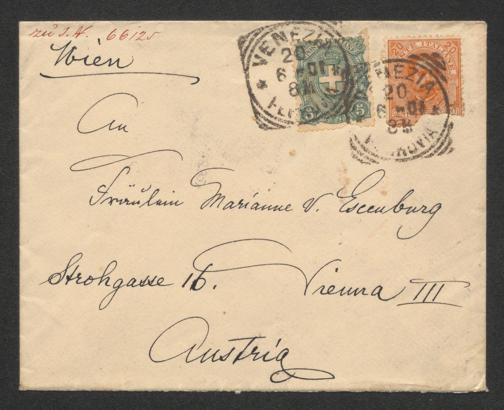 zu I.N. 66125
Wien
VENEZIA
20
6 - 01
8 M
FERROVIA
5
VENEZIA
20
6 - 01
8 M
FERROVIA
20
An
Fräulein Marianne v. Escenburg
Strohgasse 1b. Vienna III
Austria